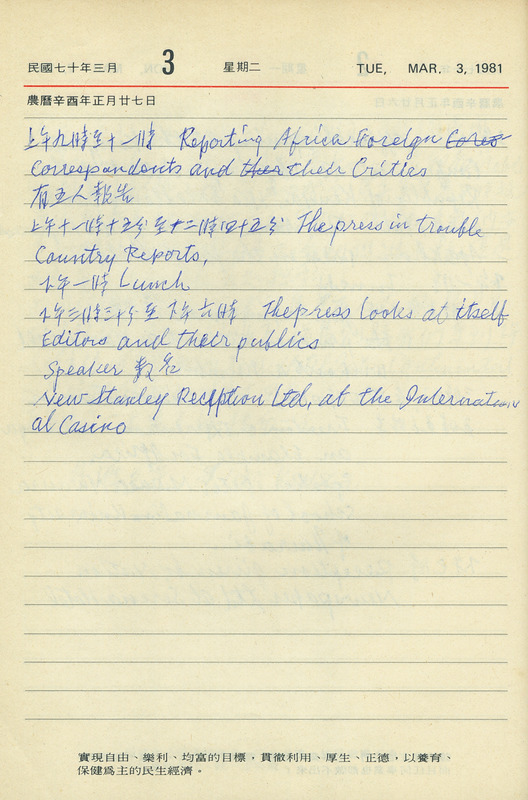 民國七十年三月 3 星期二 TUE, MAR. 3, 1981
農曆辛酉年正月廿七日
上午九時至十一時 Reporting Africa Foreign Cores
Correspondents and ther their Critics
有五人報告
上午十一時十五分至十二時四十五分 The press in trouble
Country Reports,
下午一時 Lunch
下午三時三十分至下午六時 The press looks at itself
Editors and their publics
Speaker 數名
New Stanley Reception Ltd, at the Internation
al Casino
實現自由、樂利、均富的目標，貫徹利用、厚生、正德，以養育、
保健爲主的民生經濟。